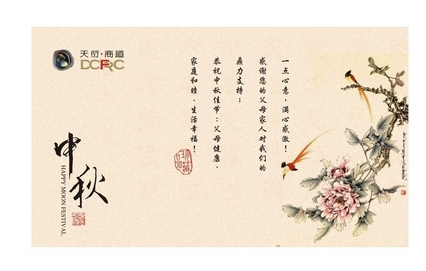 天衍·商道
一点心意，满心感激！
感谢您的父母家人对我们的
鼎力支持；
恭祝中秋佳节：父母健康、
家庭和睦、生活幸福！
中秋
HAPPY MOON FESTIVAL